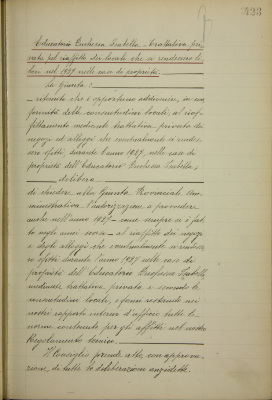 Educatorio Duchessa Isabella. Trattativa pri=
vata pel riaffitto dei locali che si renderanno li=
beri nel 1927 nelle case di proprietà.
La Giunta:
ritenuto che è opportuno addivenire, in con
formità delle consuetudini locali, al riaf=
fittamento mediante trattativa privata dei
negozi ed alloggi che eventualmente si rendes=
sero sfitti, durante l'anno 1927, nelle case di
proprietà dell'Educatorio Duchessa Isabella,
delibera
di chiedere alla Giunta Provinciale Am=
ministrativa l'autorizzazione a provvedere
anche nell'anno 1927 come sempre si è fat=
to negli anni scorsi al riaffitto dei negozi
e degli alloggi che eventualmente si rendes=
sero sfitti durante l'anno 1927 nelle case di
proprietà dell'Educatorio Duchessa Isabella
mediante trattativa privata e secondo le
consuetudini locali, ferme restando nei
nostri rapporti interni d'ufficio tutte le
norme contenute per gli affitti nel nostro
Regolamento interno.
Il Consiglio prende atto, con approva=
zione, di tutte le deliberazioni anzidette.